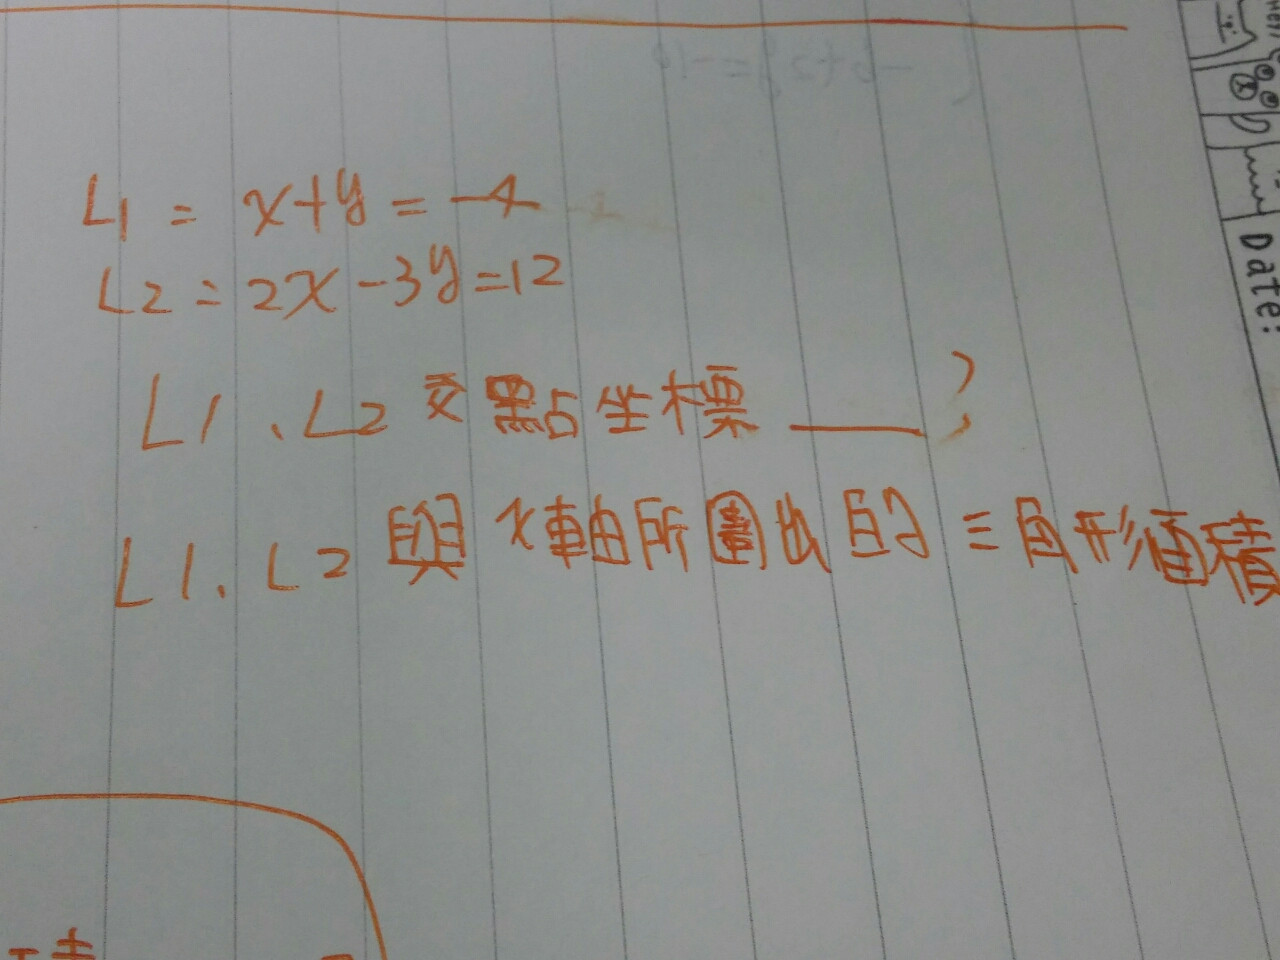 L1 = x+y = -4
L2 = 2x-3y=12
L1、L2 交點坐標 ____ ;
L1、L2 與 x軸所圍出的三角形面積
Date: